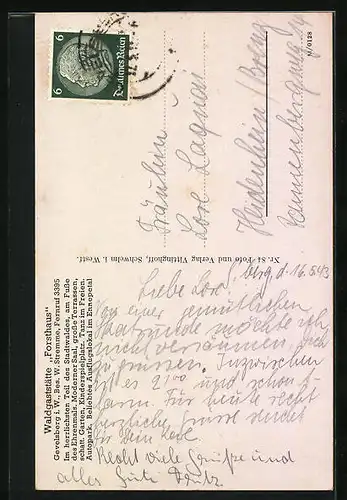 Waldgaststätte „Forsthaus"
Gevelsberg i. W., Bes. W. Stremme, Fernruf 3395
Im herrlichsten Teil des Stadtwaldes, am Fuße
des Ehrenmals. Moderner Saal, große Terrassen,
schatt. Garten, Kinderspielplatz, Tanz im Freien.
Autopark. Beliebtes Ausflugslokal im Ennepetal
berg, d. 16.5.43
Liebe Lore!
Von einer gemütlichen
möchte ich
nicht versäumen, dich
zu grüssen. Inzwischen
ist es 21⁰⁰ und schon
Für heute recht
herzliche Grüsse sendet
Dir Dein
Recht viele Grüße und
alles Gute
Nr. 51 Foto und Verlag Vittinghoff, Schwelm i. Westf.
6
Deutsches Reich
6
Fräulein
Lore
Heidenheim/Brenz
M/0128